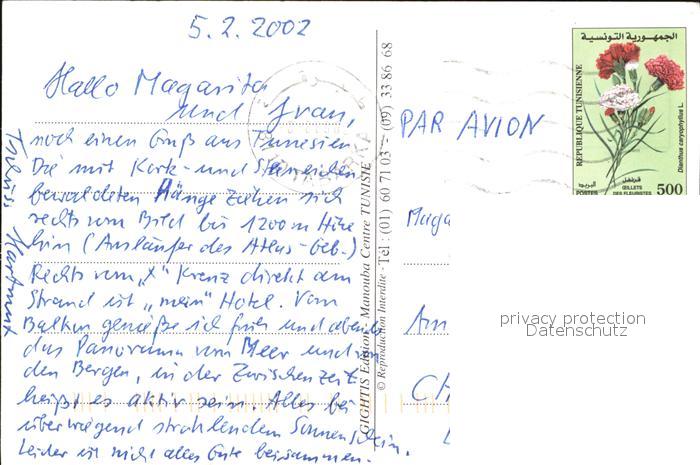 5.2.2002
Hallo Magarita
und Ivan,
noch einen Gruß aus Tunesien
Die mit Kork- und Steineichen
bewaldeten Hänge ziehen sich
rechts vom Bild bis 1200m Höhe
hin (Ausläufer des Atlas-Geb.)
Rechts vom "x" Kreuz direkt am
Strand ist "mein" Hotel. Vom
Balkon genieße ich früh und abends
das Panorama vom Meer und von
den Bergen, in der Zwischenzeit
heißt es aktiv sein. Alles bei
überwiegend strahlendem Sonnenschein.
Leider ist nicht alles Gute beisammen.
Tschüss Hartmut
GIGHTIS Edition - Manouba Centre TUNISIE
© Reproduction Interdite - Tél : (01) 60 71 03 - (09) 33 86 68
PAR AVION
Maga
Am
CH
الجمهورية التونسية
REPUBLIQUE TUNISIENNE
Dianthus caryophyllus L.
قرنفل
البريد
POSTES
ŒILLETS
DES FLEURISTES
500
privacy protection
Datenschutz